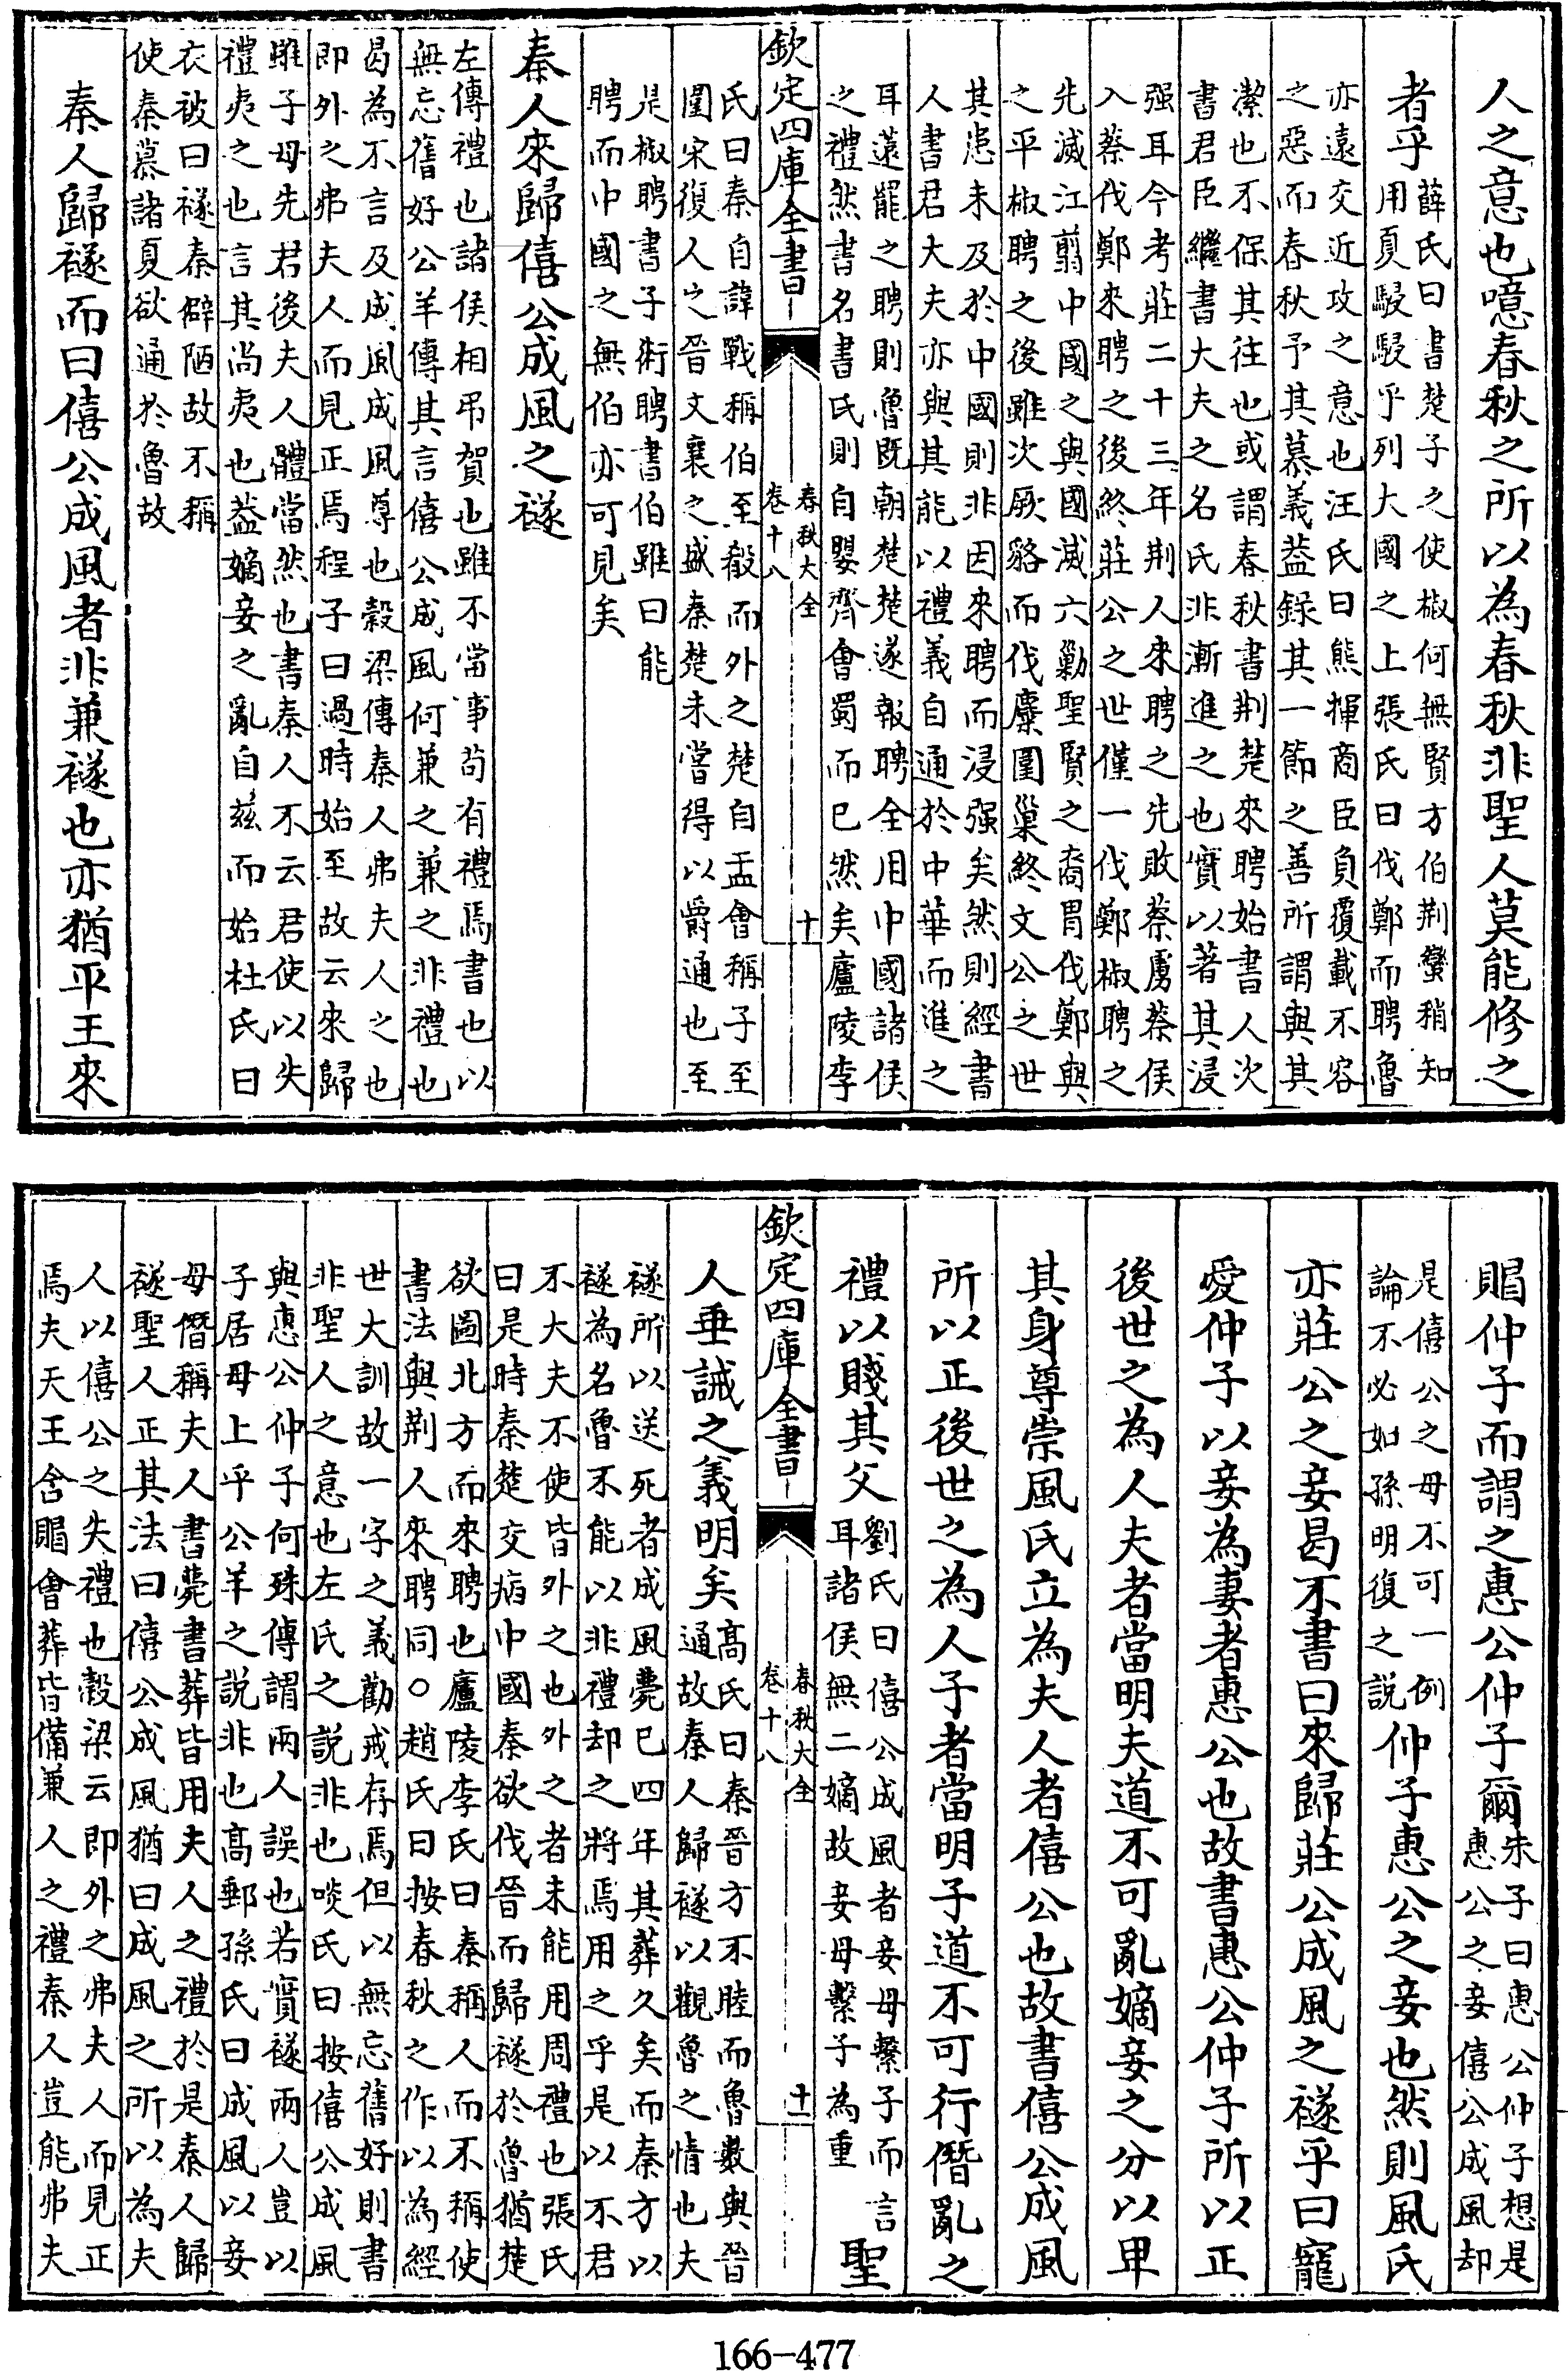 人之意也噫春秋之所以為春秋非聖人莫能修之
者乎
薛氏曰書楚子之使椒何無賢方伯荆蠻稍知
用夏駸駸乎列大國之上張氏曰伐鄭而聘魯
亦遠交近攻之意也汪氏曰熊揮商臣負覆載不容
之惡而春秋予其慕義葢錄其一節之善所謂與其
潔也不保其往也或謂春秋書荆楚來聘始書人次
書君臣繼書大夫之名氏非漸進之也實以著其浸
强耳今考莊二十三年荆人來聘之先敗蔡虜蔡侯
入蔡伐鄭來聘之後終莊公之世僅一伐鄭椒聘之
先滅江翦中國之與國滅六勦聖賢之裔胃伐鄭與
之平椒聘之後雖次厥貉而伐麋圍巢終文公之世
其患未及於中國則非因來聘而浸强矣然則經書
人書君大夫亦與其能以禮義自通於中華而進之
耳薳罷之聘則魯既朝楚楚遂報聘全用中國諸侯
之禮然書名書氏則自嬰齊會蜀而已然矣廬陵李
欽定四庫全書
春秋大全
卷十八
十
氏曰秦自諱戰稱伯至殽而外之楚自盂會稱子至
圍宋復人之晉文襄之盛秦楚未嘗得以爵通也至
是椒聘書子術聘書伯雖曰能
聘而中國之無伯亦可見矣
秦人來歸僖公成風之禭
左傳禮也諸侯相弔賀也雖不當事苟有禮焉書也以
無忘舊好公羊傳其言僖公成風何兼之兼之非禮也
曷為不言及成風成風尊也穀梁傳秦人弗夫人之也
即外之弗夫人而見正焉程子曰過時始至故云來歸
雖子母先君後夫人體當然也書秦人不云君使以失
禮夷之也言其尚夷也葢嫡妾之亂自兹而始杜氏曰
衣被曰禭秦辟陋故不稱
使秦慕諸夏欲通於魯故
秦人歸禭而曰僖公成風者非兼禭也亦猶平王來
賵仲子而謂之惠公仲子爾
朱子曰惠公仲子想是
惠公之妾僖公成風却
是僖公之母不可一例
論不必如孫明復之説
仲子惠公之妾也然則風氏
亦莊公之妾曷不書曰來歸莊公成風之禭乎曰寵
愛仲子以妾為妻者惠公也故書惠公仲子所以正
後世之為人夫者當明夫道不可亂嫡妾之分以卑
其身尊崇風氏立為夫人者僖公也故書僖公成風
所以正後世之為人子者當明子道不可行僭亂之
禮以賤其父
劉氏曰僖公成風者妾母繫子而言
耳諸侯無二嫡故妾母繫子為重
聖
欽定四庫全書
春秋大全
卷十八
十一
人垂誡之義明矣
高氏曰秦晉方不睦而魯數與晉
通故秦人歸禭以觀魯之情也夫
禭所以送死者成風薨已四年其葬久矣而秦方以
禭為名魯不能以非禮却之將焉用之乎是以不君
不大夫不使皆外之也外之者未能用周禮也張氏
曰是時秦楚交病中國秦欲伐晉而歸禭於魯猶楚
欲圖北方而來聘也廬陵李氏曰秦稱人而不稱使
書法與荆人來聘同○趙氏曰按春秋之作以為經
世大訓故一字之義勸戒存焉但以無忘舊好則書
非聖人之意也左氏之説非也啖氏曰按僖公成風
與惠公仲子何殊傳謂兩人誤也若實禭兩人豈以
子居母上乎公羊之説非也髙郵孫氏曰成風以妾
母僭稱夫人書薨書葬皆用夫人之禮於是秦人歸
禭聖人正其法曰僖公成風猶曰成風之所以為夫
人以僖公之失禮也穀梁云即外之弗夫人而見正
焉夫天王含賵會葬皆備兼人之禮秦人豈能弗夫
166-477